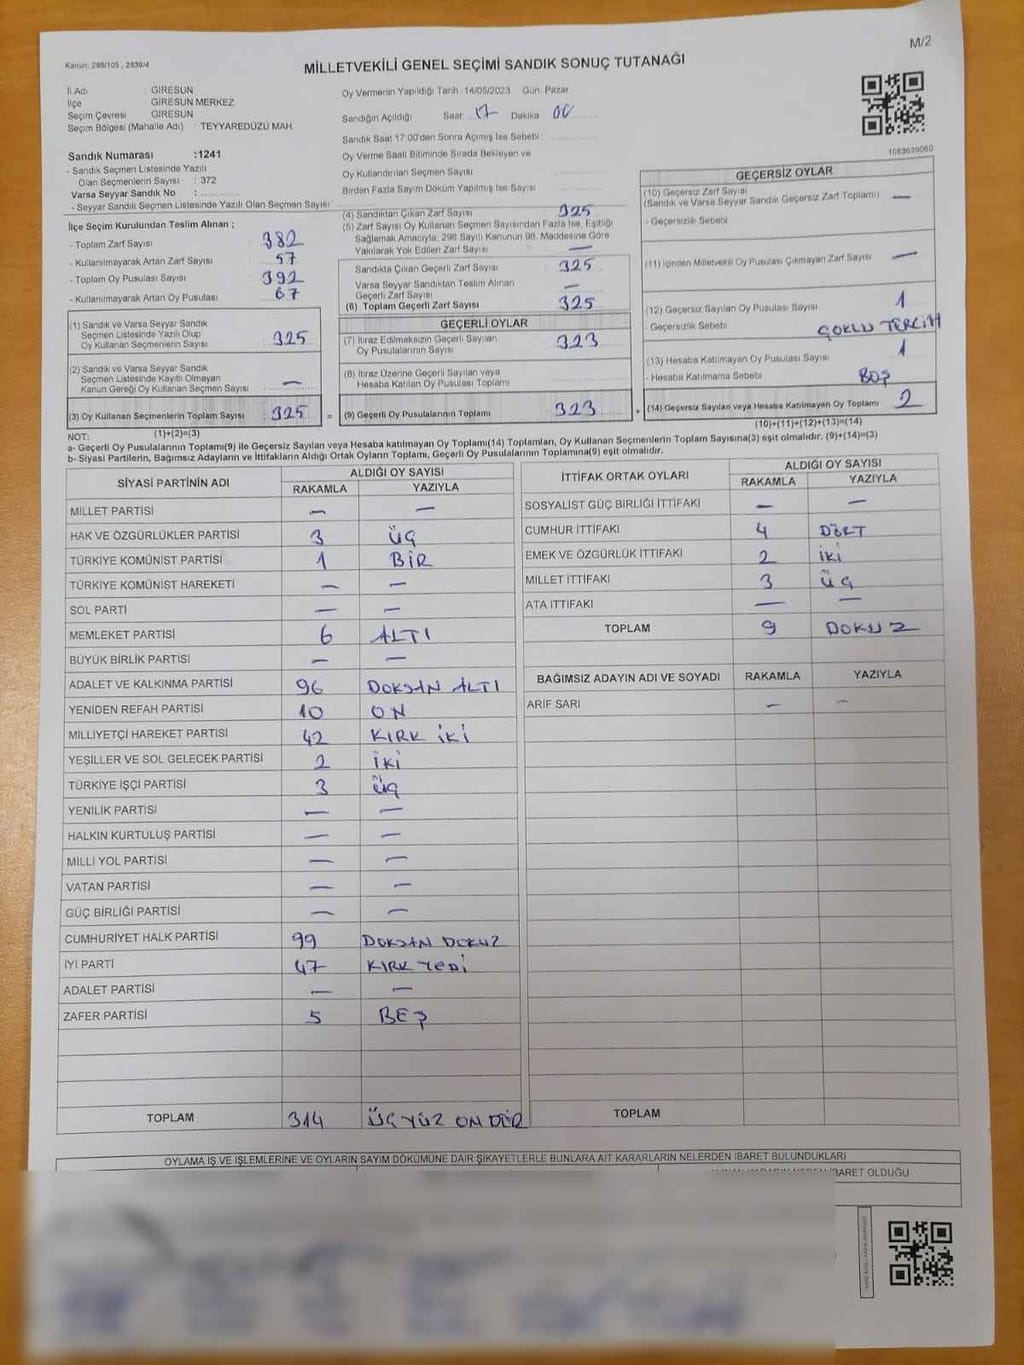 M/2
Kanun: 298/105 , 2839/4
MİLLETVEKİLİ GENEL SEÇİMİ SANDIK SONUÇ TUTANAĞI
İl Adı : GİRESUN
İlçe GİRESUN MERKEZ
Seçim Çevresi GİRESUN
Seçim Bölgesi (Mahalle Adı) : TEYYAREDÜZÜ MAH.
Sandık Numarası :1241
- Sandık Seçmen Listesinde Yazılı
Olan Seçmenlerin Sayısı : 372
Varsa Seyyar Sandık No :
- Seyyar Sandık Seçmen Listesinde Yazılı Olan Seçmen Sayısı :
Oy Vermenin Yapıldığı Tarih :14/05/2023 Gün: Pazar
Sandığın Açıldığı Saat 17 Dakika 00
Sandık Saat 17:00'den Sonra Açılmış İse Sebebi :
Oy Verme Saati Bitiminde Sırada Bekleyen ve
Oy Kullandırılan Seçmen Sayısı
Birden Fazla Sayım Döküm Yapılmış İse Sayısı
1083639060
İlçe Seçim Kurulundan Teslim Alınan ;
- Toplam Zarf Sayısı 382
- Kullanılmayarak Artan Zarf Sayısı 57
- Toplam Oy Pusulası Sayısı 392
- Kullanılmayarak Artan Oy Pusulası 67
(1) Sandık ve Varsa Seyyar Sandık
Seçmen Listesinde Yazılı Olup
Oy Kullanan Seçmenlerin Sayısı 325
(2) Sandık ve Varsa Seyyar Sandık
Seçmen Listesinde Kayıtlı Olmayan
Kanun Gereği Oy Kullanan Seçmen Sayısı —
(3) Oy Kullanan Seçmenlerin Toplam Sayısı 325 =
(1)+(2)=(3)
(4) Sandıktan Çıkan Zarf Sayısı 325
(5) Zarf Sayısı Oy Kullanan Seçmen Sayısından Fazla İse, Eşitliği
Sağlamak Amacıyla; 298 Sayılı Kanunun 98. Maddesine Göre
Yakılarak Yok Edilen Zarf Sayısı —
Sandıkta Çıkan Geçerli Zarf Sayısı 325
Varsa Seyyar Sandıktan Teslim Alınan
Geçerli Zarf Sayısı —
(6) Toplam Geçerli Zarf Sayısı 325
GEÇERLİ OYLAR
(7) İtiraz Edilmeksizin Geçerli Sayılan
Oy Pusulalarının Sayısı 323
(8) İtiraz Üzerine Geçerli Sayılan veya
Hesaba Katılan Oy Pusulası Toplamı
(9) Geçerli Oy Pusulalarının Toplamı 323 +
GEÇERSİZ OYLAR
(10) Geçersiz Zarf Sayısı
(Sandık ve Varsa Seyyar Sandık Geçersiz Zarf Toplamı) —
- Geçersizlik Sebebi
(11) İçinden Milletvekili Oy Pusulası Çıkmayan Zarf Sayısı —
(12) Geçersiz Sayılan Oy Pusulası Sayısı 1
- Geçersizlik Sebebi ÇOKLU TERCİH
(13) Hesaba Katılmayan Oy Pusulası Sayısı 1
- Hesaba Katılmama Sebebi BOŞ
(14) Geçersiz Sayılan veya Hesaba Katılmayan Oy Toplamı 2
(10)+(11)+(12)+(13)=(14)
NOT:
a- Geçerli Oy Pusulalarının Toplamı(9) ile Geçersiz Sayılan veya Hesaba katılmayan Oy Toplamı(14) Toplamları, Oy Kullanan Seçmenlerin Toplam Sayısına(3) eşit olmalıdır. (9)+(14)=(3)
b- Siyasi Partilerin, Bağımsız Adayların ve İttifakların Aldığı Ortak Oyların Toplamı, Geçerli Oy Pusulalarının Toplamına(9) eşit olmalıdır.
SİYASİ PARTİNİN ADI ALDIĞI OY SAYISI
RAKAMLA YAZIYLA
MİLLET PARTİSİ — —
HAK VE ÖZGÜRLÜKLER PARTİSİ 3 ÜÇ
TÜRKİYE KOMÜNİST PARTİSİ 1 BİR
TÜRKİYE KOMÜNİST HAREKETİ — —
SOL PARTİ — —
MEMLEKET PARTİSİ 6 ALTI
BÜYÜK BİRLİK PARTİSİ — —
ADALET VE KALKINMA PARTİSİ 96 DOKSAN ALTI
YENİDEN REFAH PARTİSİ 10 ON
MİLLİYETÇİ HAREKET PARTİSİ 42 KIRK İKİ
YEŞİLLER VE SOL GELECEK PARTİSİ 2 İKİ
TÜRKİYE İŞÇİ PARTİSİ 3 ÜÇ
YENİLİK PARTİSİ — —
HALKIN KURTULUŞ PARTİSİ — —
MİLLİ YOL PARTİSİ — —
VATAN PARTİSİ — —
GÜÇ BİRLİĞİ PARTİSİ — —
CUMHURİYET HALK PARTİSİ 99 DOKSAN DOKUZ
İYİ PARTİ 47 KIRK YEDİ
ADALET PARTİSİ — —
ZAFER PARTİSİ 5 BEŞ
TOPLAM 314 ÜÇ YÜZ ON DÖR
İTTİFAK ORTAK OYLARI ALDIĞI OY SAYISI
RAKAMLA YAZIYLA
SOSYALİST GÜÇ BİRLİĞİ İTTİFAKI — —
CUMHUR İTTİFAKI 4 DÖRT
EMEK VE ÖZGÜRLÜK İTTİFAKI 2 İKİ
MİLLET İTTİFAKI 3 ÜÇ
ATA İTTİFAKI — —
TOPLAM 9 DOKUZ
BAĞIMSIZ ADAYIN ADI VE SOYADI RAKAMLA YAZIYLA
ARİF SARI — —
TOPLAM
OYLAMA İŞ VE İŞLEMLERİNE VE OYLARIN SAYIM DÖKÜMÜNE DAİR ŞİKAYETLERLE BUNLARA AİT KARARLARIN NELERDEN İBARET BULUNDUKLARI
İBARET OLDUĞU